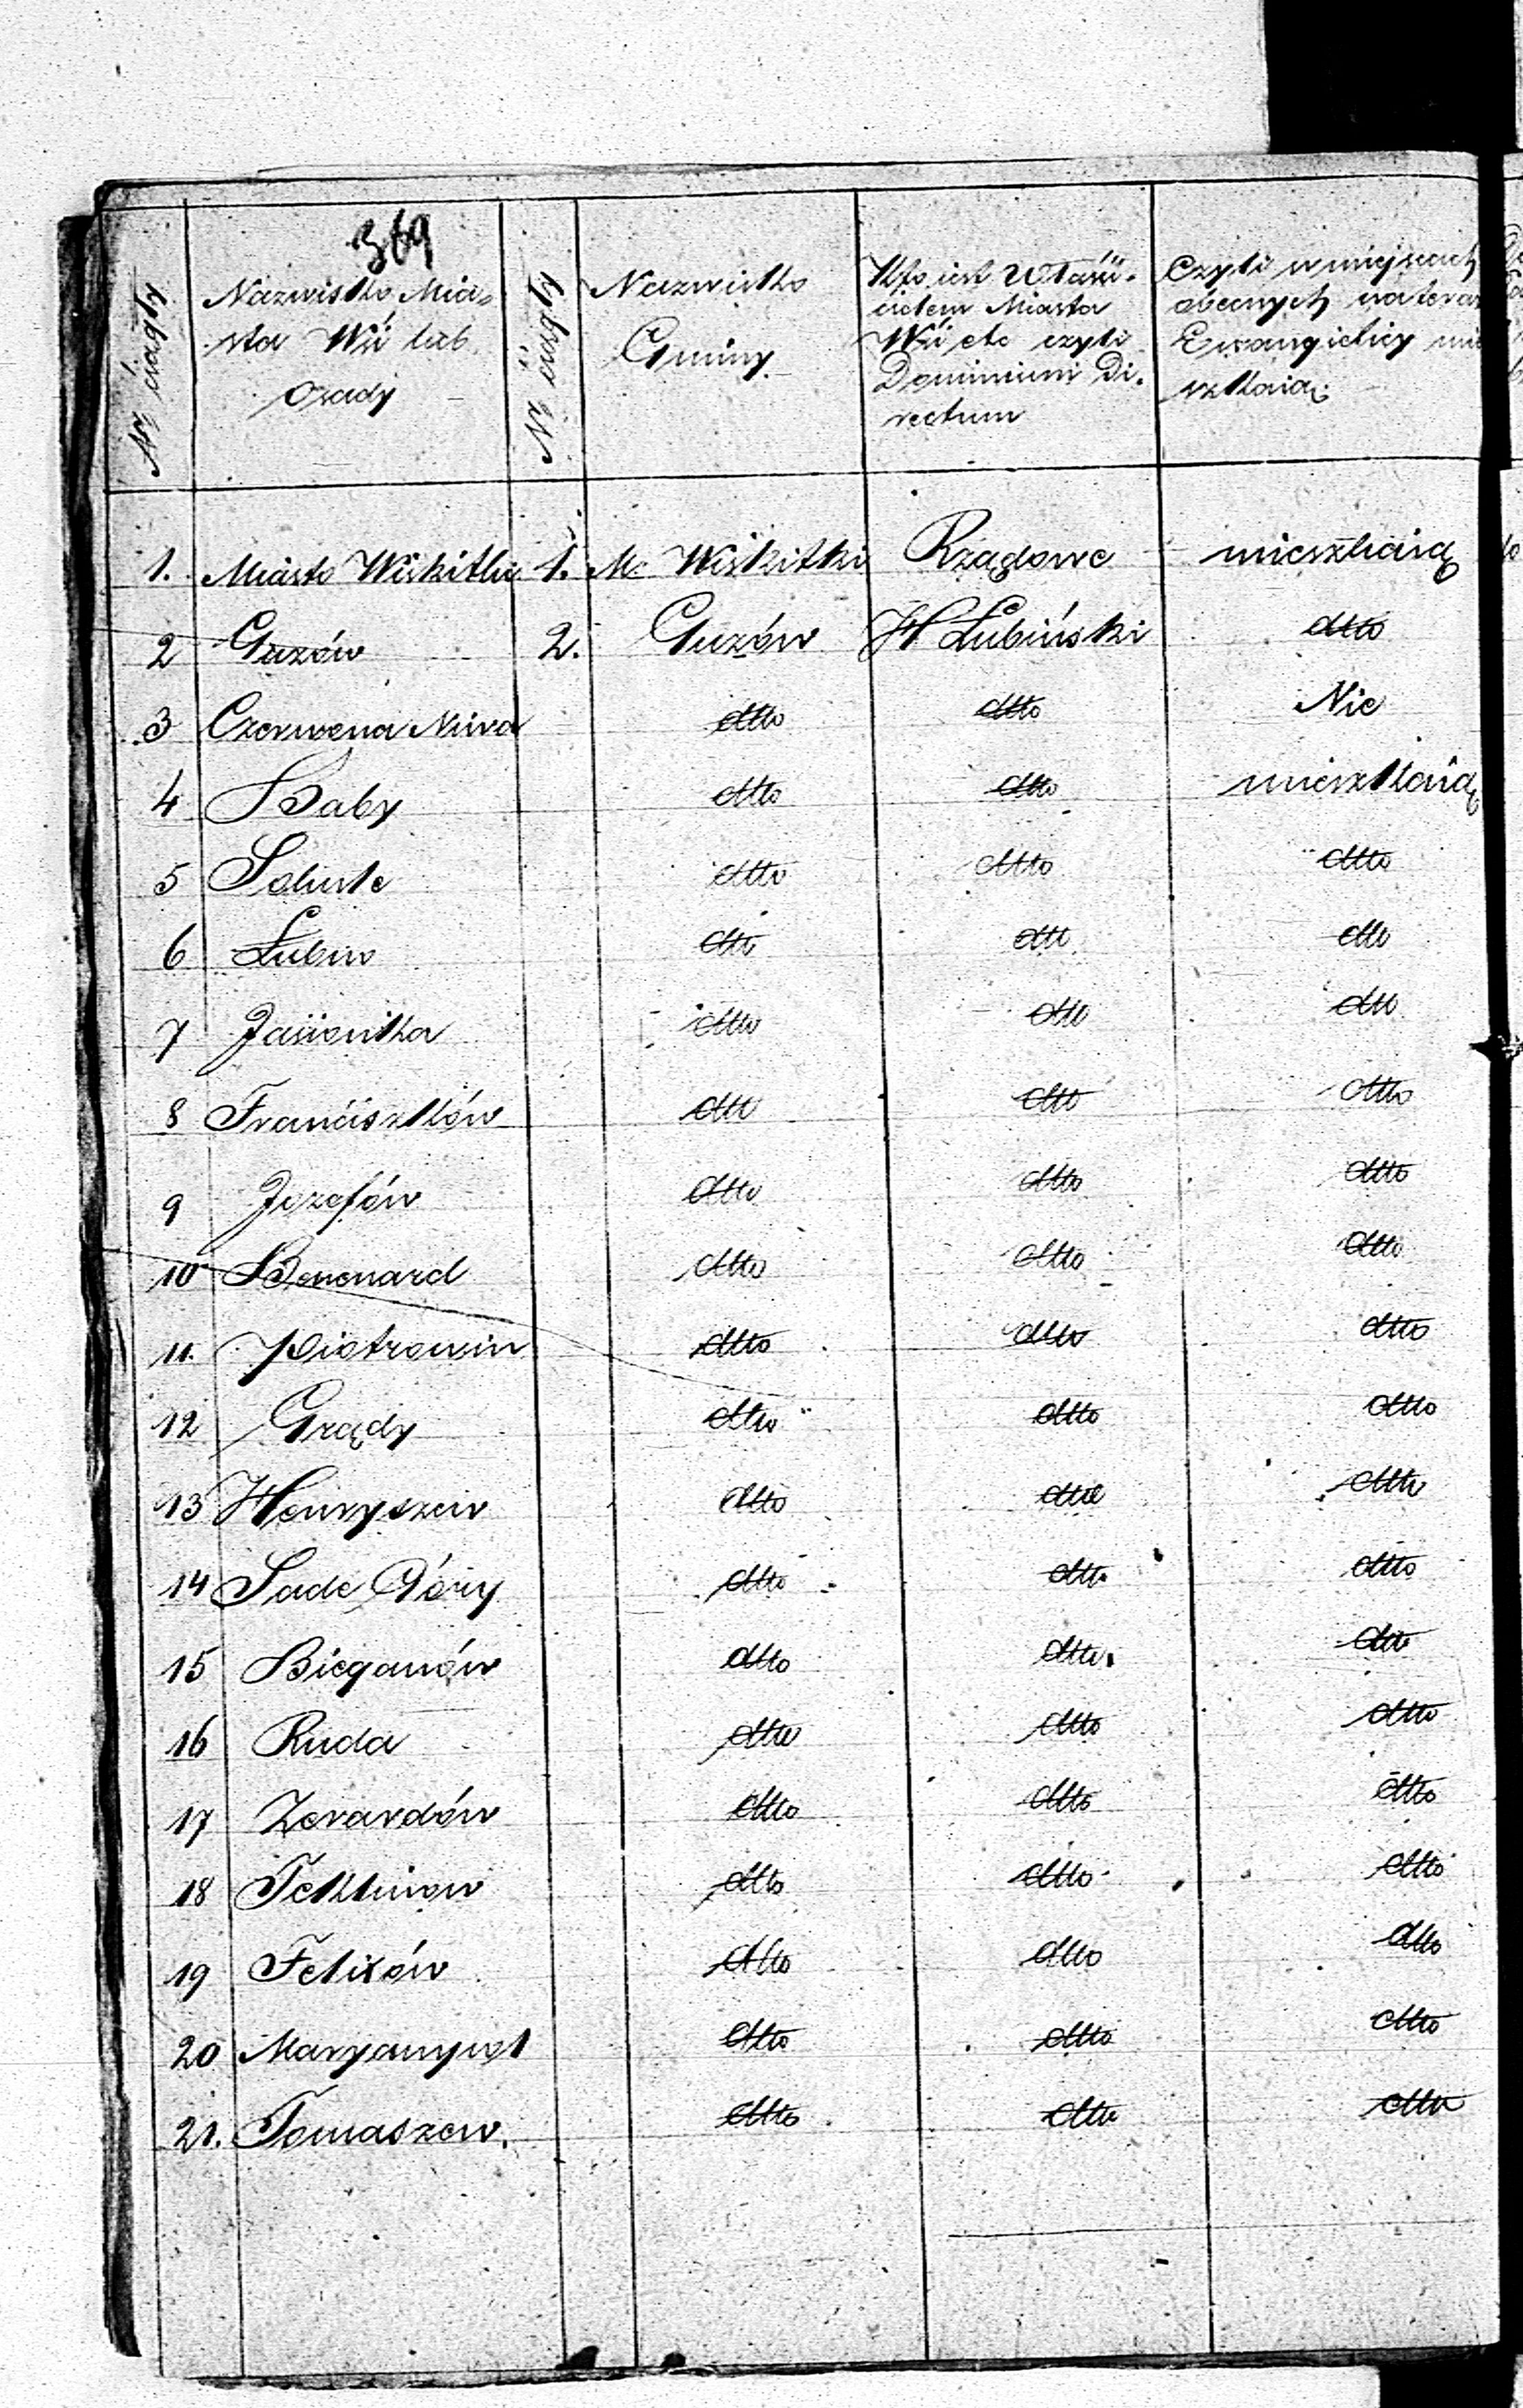 369
Nr ciągły
Nazwisko Mia-
sta Wsi lub
osady
Nr ciągły
Nazwisko
Gminy
Kto jest Właści-
cielem Miasta
Wsi etc czyli
Dominium Di-
rectum
Czyli w miejscach
obecnych
Ewangielicy
1. Miasto Wiskitki 1. M. Wiskitki Rządowe mieszkaią
2 Guzów 2. Guzów H Łubiński dtto
3 Czerwona Niwa dtto dtto Nie
4 Baby dtto dtto mieszkaią
5 Sokule dtto dtto dtto
6 Łubno dtto dtto dtto
7 Jasionka dtto dtto dtto
8 Franciszków dtto dtto dtto
9 Jozefów dtto dtto dtto
10 Benenard dtto dtto dtto
11. Piotrowin dtto dtto dtto
12 Grądy dtto dtto dtto
13 Henryszew dtto dtto dtto
14 Sade Góry dtto dtto dtto
15 Bieganów dtto dtto dtto
16 Ruda dtto dtto dtto
17 Zerardów dtto dtto dtto
18 Teklinow dtto dtto dtto
19 Felixów dtto dtto dtto
20 Maryampol dtto dtto dtto
21. Tomaszew. dtto dtto dtto